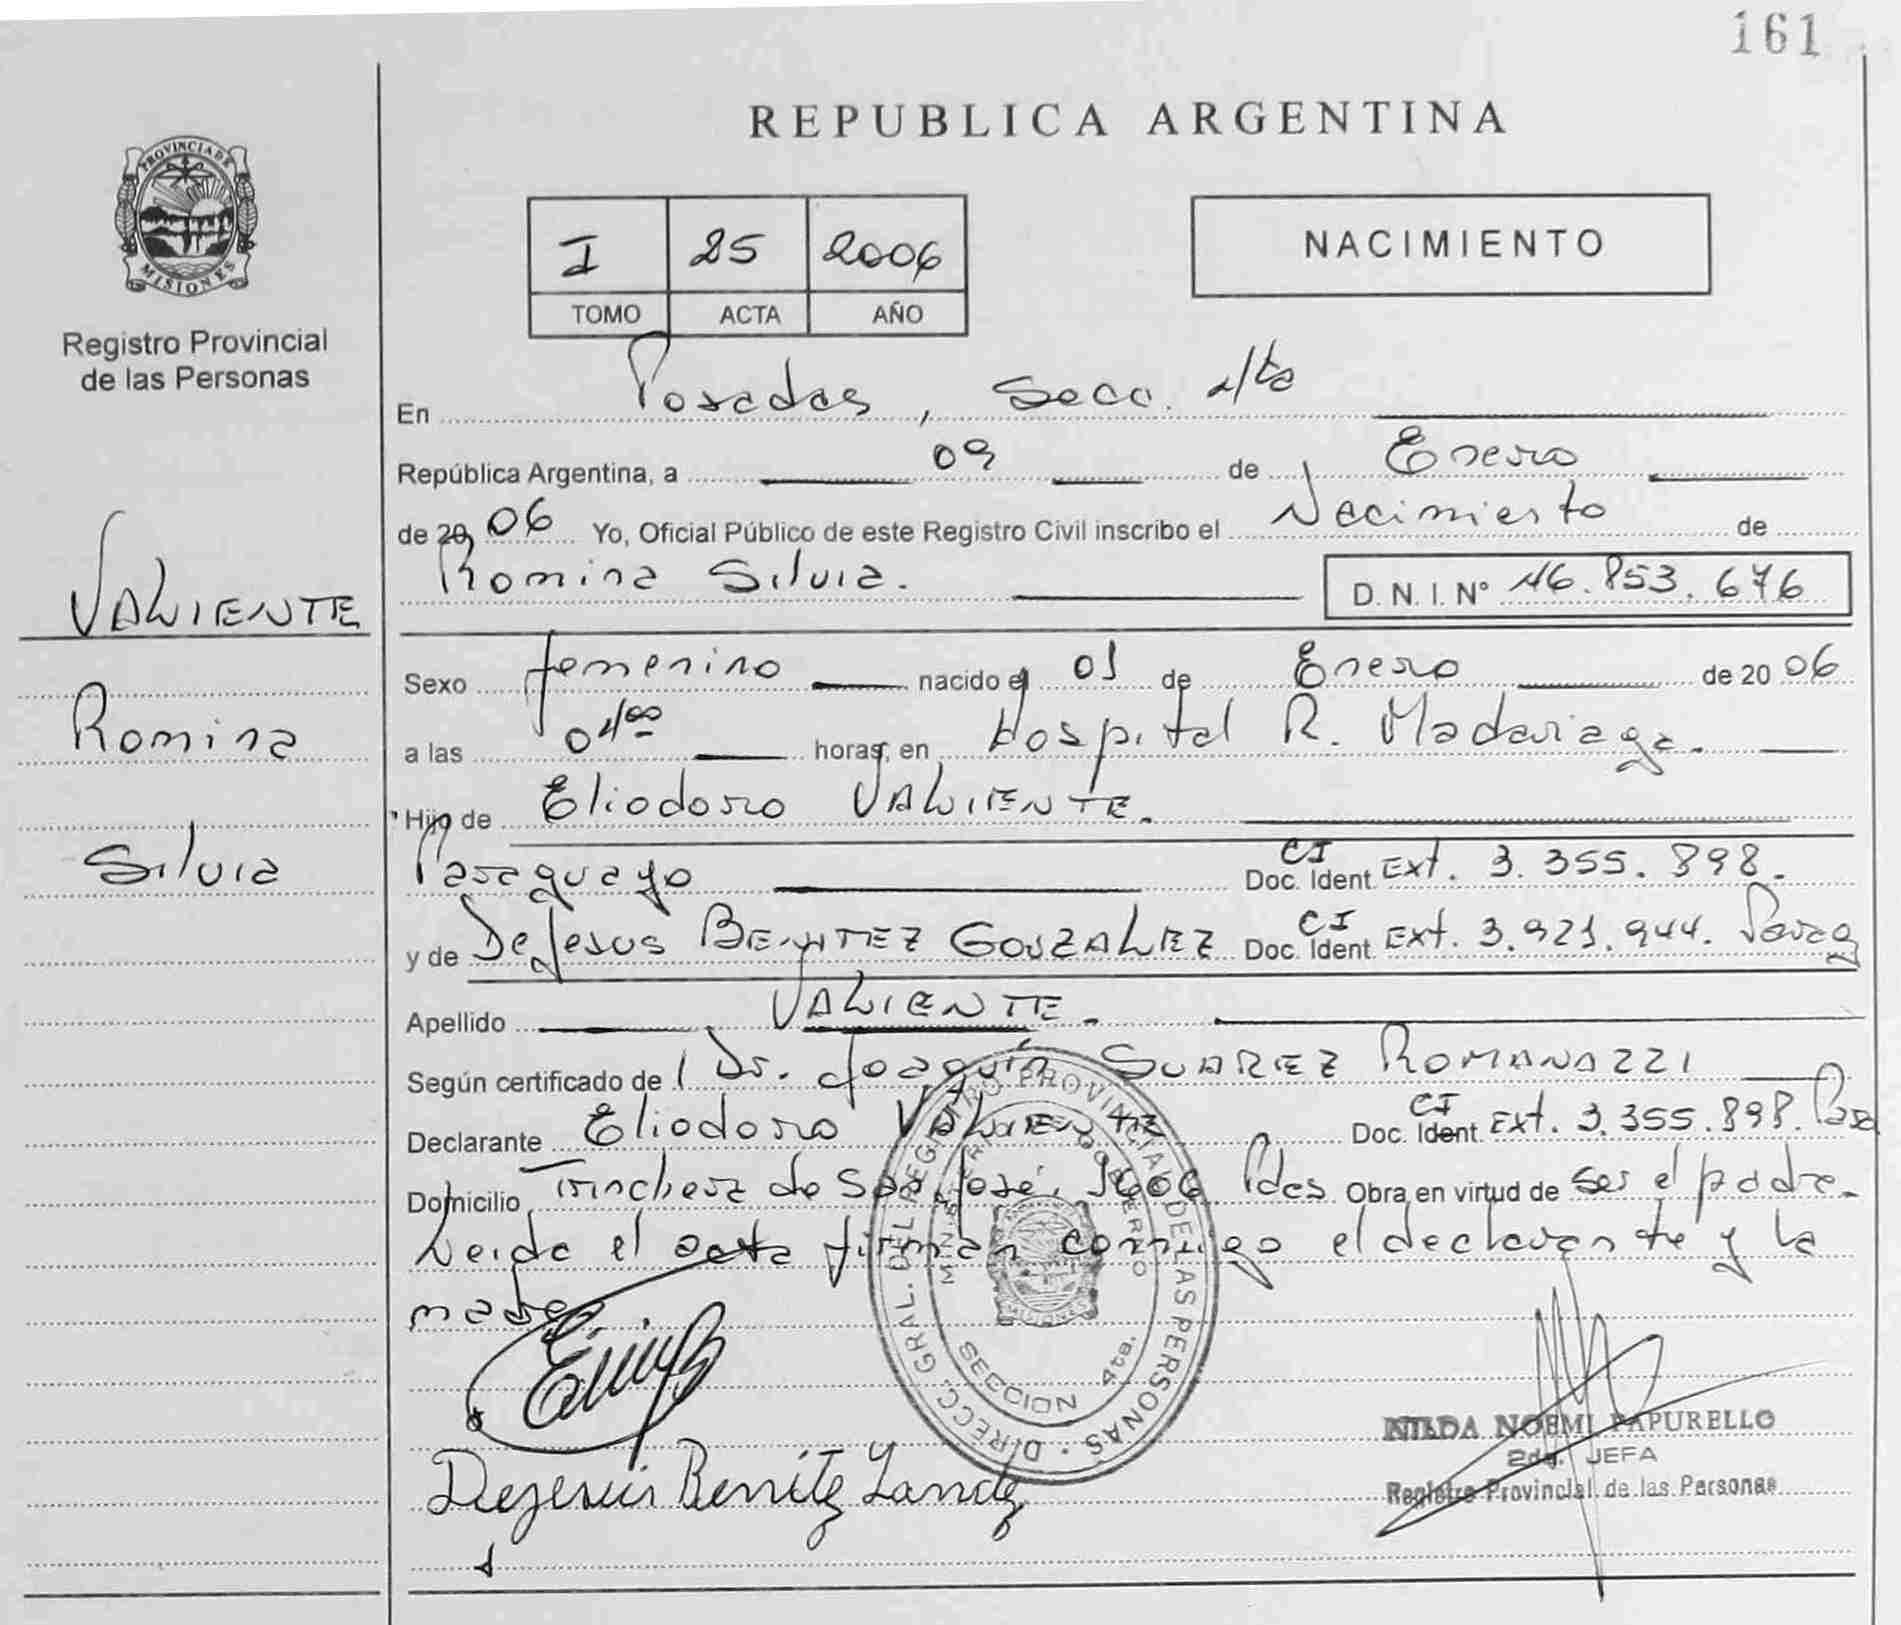 161
REPUBLICA ARGENTINA
PROVINCIA DE
MISIONES
Registro Provincial
de las Personas
I 25 2006
TOMO ACTA AÑO
NACIMIENTO
En Posadas, Secc. 4ta
República Argentina, a 09 de Enero
de 20 06 Yo, Oficial Público de este Registro Civil inscribo el Nacimiento de
Romina Silvia.
D. N. I. Nº 46.853.676
VALIENTE
Romina
Silvia
Sexo femenino nacido el 01 de Enero de 20 06
a las 04 00 horas, en Hospital R. Madariaga.
Hijo de Eliodoro VALIENTE.
Paraguayo CI Doc. Ident. Ext. 3.355.898.
y de Dejesus BENITEZ GONZALEZ CI Doc. Ident. Ext. 3.921.944. Parag
Apellido VALIENTE.
Según certificado de Dr. Joaquín SUAREZ ROMANAZZI
Declarante Eliodoro VALIENTE CI Doc. Ident. Ext. 3.355.898. Para
Domicilio Trinchera de San José, Pdas Obra en virtud de ser el padre.
Leida el acta firman conmigo el declarante y la
madre
DIRECC. GRAL. DEL REGISTRO PROVINCIAL DE LAS PERSONAS
MINISTERIO DE GOBIERNO
MISIONES
SECCION 4ta.
Dejesus Benitez
NILDA NOEMI PAPURELLO
2da. JEFA
Registro Provincial de las Personas